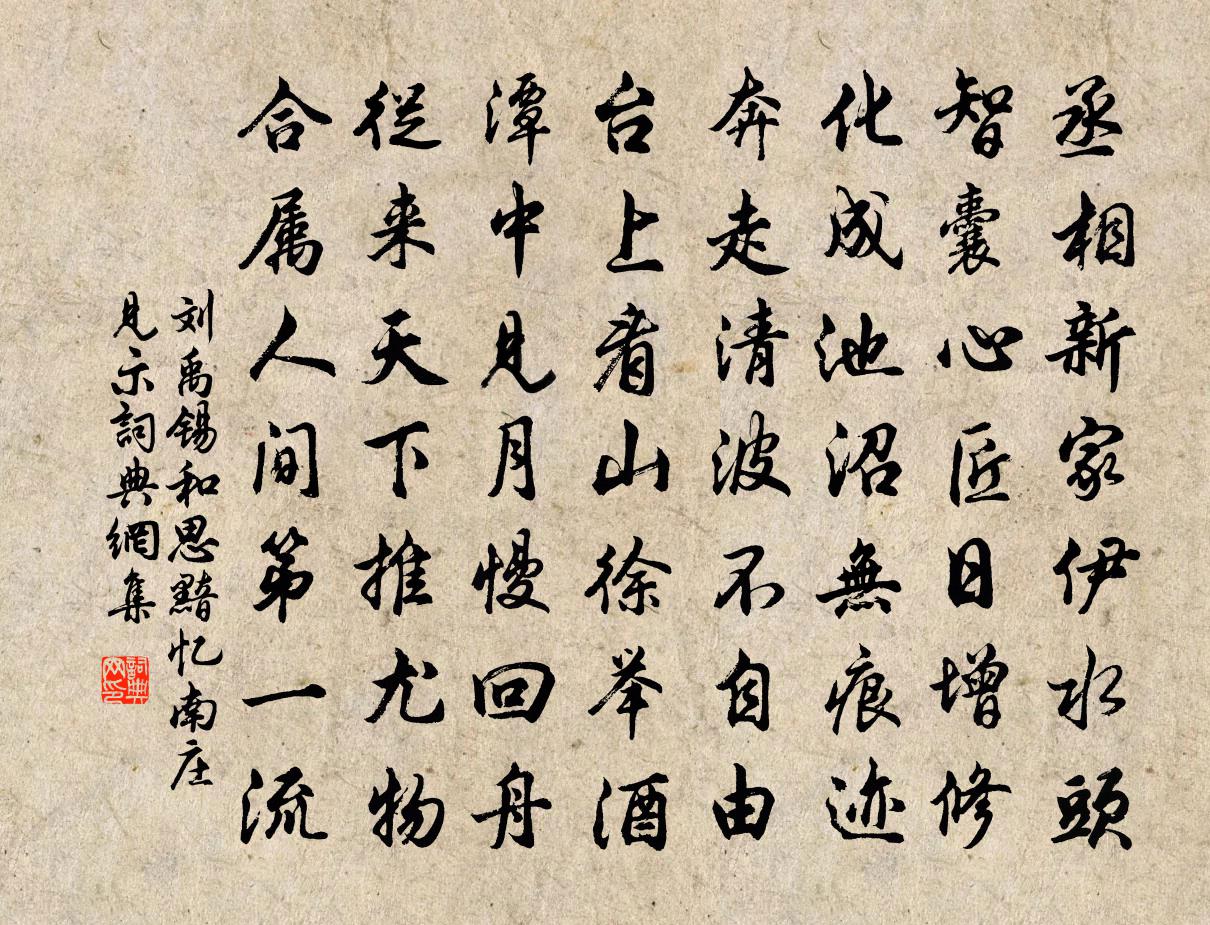 丞相新家伊水頭
智囊心匠日增修
化成池沼無痕迹
奔走清波不自由
台上看山徐举酒
潭中見月慢回舟
從来天下推尤物
合属人间第一流
刘禹锡和思黯忆南庄
見示詞典網集
詞典
网印